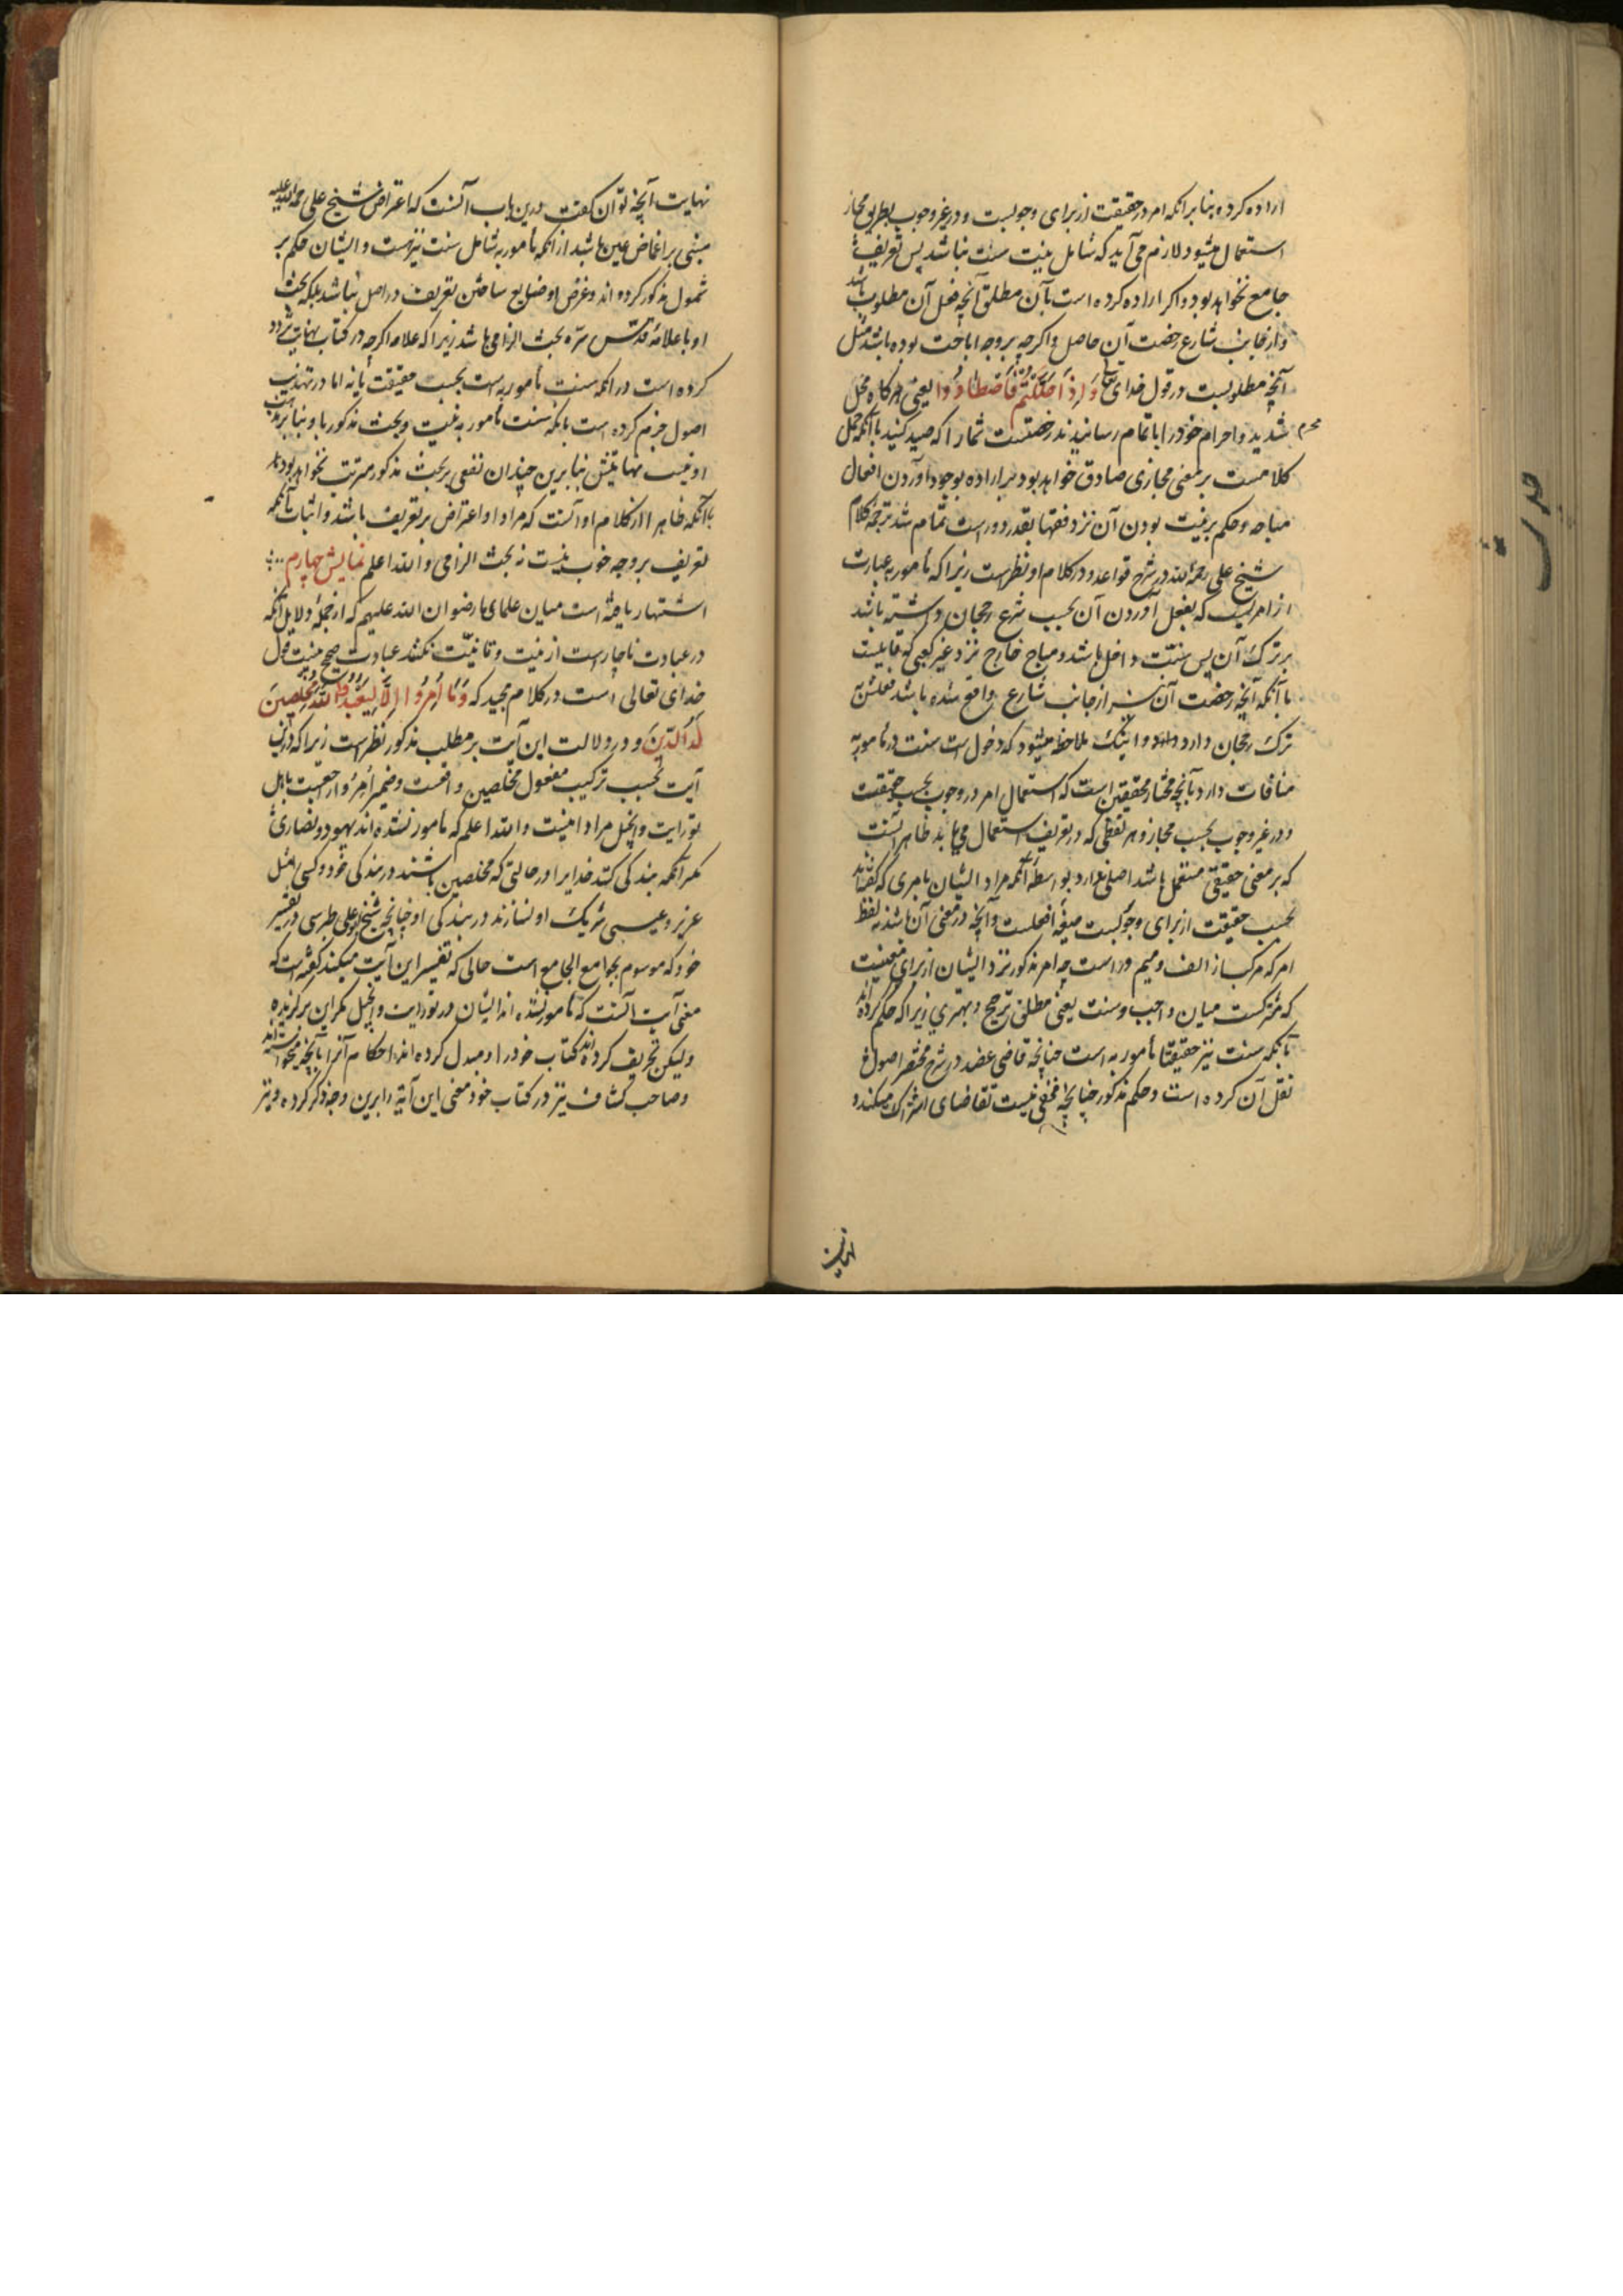 اراده کرده بنا برانکه امر در حقیقت از برای وجوبست و در غیر وجوب بطریق مجاز
استعمال میشود لازم می آید که شامل نیت سنت نباشد پس تعریفش
جامع نخواهد بود و اکر اراده کرده است بآن مطلق آنچه فعل آن مطلوب باشد
و از جانب شارع رخصت آن حاصل و اکرچه بر وجه اباحت بوده باشد مثل
آنچه مطلوبست در قول خدای تعالی وَاِذَا حَلَلْتُمْ فَاصْطَادُوا یعنی هر کاه محل
شدید و احرام خود را باتمام رسانیدند رخصتست شما را که صید کنید باآنکه حمل
محرم
کلامست بر معنی مجازی صادق خواهد بود بر اراده بوجود آوردن افعال
مباحه و حکم بر نیت بودن آن نزد فقها بقدر دور است تمام شد ترجمه کلام
شیخ علی رحمه الله در شرح قواعد و در کلام او نظر است زیرا که مأمور به عبارت
از امریست که بفعل آوردن آن بحسب شرع رجحان داشته باشد
بر ترک آن پس سنت داخل باشد و مباح خارج نزد غیر کعبی که قایلست
باآنکه آنچه رخصت آن از جانب شارع واقع شده باشد فعلش بر
ترک رجحان دارد و اینک ملاحظه میشود که دخول سنت در مأمور به
منافات دارد بآنچه مختار محققین است که استعمال امر در وجوب بحسب حقیقت
و در غیر وجوب بحسب مجاز و هر لفظی که در تعریف استعمال می یابد ظاهر آنست
که بر معنی حقیقی مستعمل باشد اصلی ندارد بواسطه آنکه مراد ایشان بامری که گفته‌اند
بحسب حقیقت از برای وجوبست صیغه افعلست و آنچه در معنی آن باشد نه لفظ
امر که مرکب از الف و میم و راست چه امر مذکور نزد ایشان از برای معنیست
که مشترکست میان واجب و سنت یعنی مطلق ترجیح و بهتری زیرا که حکم کرده‌اند
بآنکه سنت نیز حقیقتا مأمور به است چنانچه قاضی عضد در شرح مختصر اصول
نقل آن کرده است و حکم مذکور چنانچه مخفی نیست تقاضای اشتراک میکند و
نهایت
نهایت آنچه توان کفت درین باب آنست که اعتراض شیخ علی رحمه الله علیه
مبنی بر اغماض عین باشد از آنکه مأمور به شامل سنت نیز هست و ایشان حکم بر
شمول مذکور کرده اند و غرض او ضایع ساختن تعریف در اصل نباشد بلکه بحث
او با علامه قدس سره بحث الزامی باشد زیرا که علامه اکرچه در کتاب نهایت تردد
کرده است در انکه سنت مأمور به است بحسب حقیقت یا نه اما در تهذیب
اصول جزم کرده است بانکه سنت مأمور به نیست و بحث مذکور با و بنا بر مذهب
اونیست نهایتش بنا برین چندان نفعی بر بحث مذکور مترتب نخواهد بود
باآنکه ظاهرا از کلام او آنست که مراد او اعتراض بر تعریف باشد و اثبات آنکه
تعریف بر وجه خوب نیست نه بحث الزامی والله اعلم نمایش چهارم
اشتهار یافته است میان علمای ما رضوان الله علیهم که از جمله دلایل آنکه
در عبادت ناچار است از نیت و تا نیت نکنند عبادت صحیح نیست قول
خدای تعالی است در کلام مجید که وَمَا اُمِرُوا اِلَّا لِیَعْبُدُوا اللهَ مُخْلِصِینَ
لَهُ الدِّینَ و در دلالت این آیت بر مطلب مذکور نظر است زیرا که درین
آیت بحسب ترکیب مفعول مخلصین واقعست و ضمیر اُمِرُوا راجعست باهل
تورایت و انجیل مراد اینست والله اعلم که مامور نشده اند یهود و نصاری
مکر آنکه بندکی کنند خدایرا در حالتی که مخلصین باشند در بندکی خود و کسی مثل
عزیر و عیسی شریک او نسازند در بندکی او چنانچه شیخ ابوعلی طبرسی در تفسیر
خود که موسوم بجوامع الجامع است حالی که تفسیر این آیت میکند کفته است که
معنی آیت آنست که مامور نشده اند ایشان در تورایت و انجیل مکر این
ولیکن تحریف کرده‌اند کتاب خود را و مبدل کرده اند احکام آنرا بآنچه میخواسته‌اند
و صاحب کشاف نیز در کتاب خود معنی این آیة را برین وجه ذکر کرده و نیز